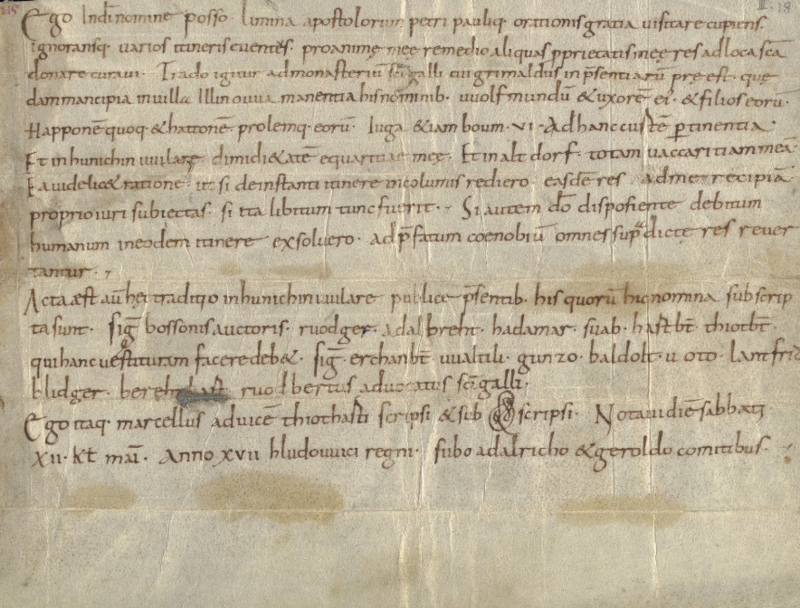 215 III. 18
Ego Indinomine posso. lumina apostolorum petri pauliq. orationis gratia visitare cupiens.
ignoransq. varios itineris eventus. pro anime meę remedio aliquas proprietatis meę res ad loca scā
donare curavi. Trado igitur ad monasteriū sc̄i galli cui grimaldus in psentiarū preest. que
dam mancipia in villa Illinouua manentia his nominib. uuolfmundū & uxorē ei. & filios eorū.
Happonē quoq. & hattonē prolemq. eorū. Iuga & iam boum. VI. Ad hanc pertinentia.
Et in hunichinuuilare. dimidi&atē equaritiae meę. Et in altdorf. totam vaccaritiam meā.
Ea videlic& ratione. ut si de instanti itinere incolumis rediero. easdē res. ad me recipiā
proprio iuri subiectas. si ita libitum tunc fuerit. Si autem dō disponente debitum
humanum in eodem itinere exsoluero. ad p̄fatum coenobiū omnes sup̄dicte res rever
tantur.
Acta ēst autē hec traditio in hunichinuuilare publice p̄sentib. his quorū hic nomina subscrip
ta sunt. Sig bossonis auctoris. ruodger. adalbreht. hadamar. suab. hastb̄t. thiotb̄t.
qui hanc vestituram facere deb&. sig erchanb̄t. uualtili. gunzo. baldolt. uoto. lantfrid
blidger. ruodbertus advocatus sc̄i galli.
Ego itaq. marcellus ad vicē thiothasti scripsi & sub scripsi. Notavi diē sabbati
XII. kl mai. Anno XVII hludouuici regni. sub odalricho & geroldo comitibus.